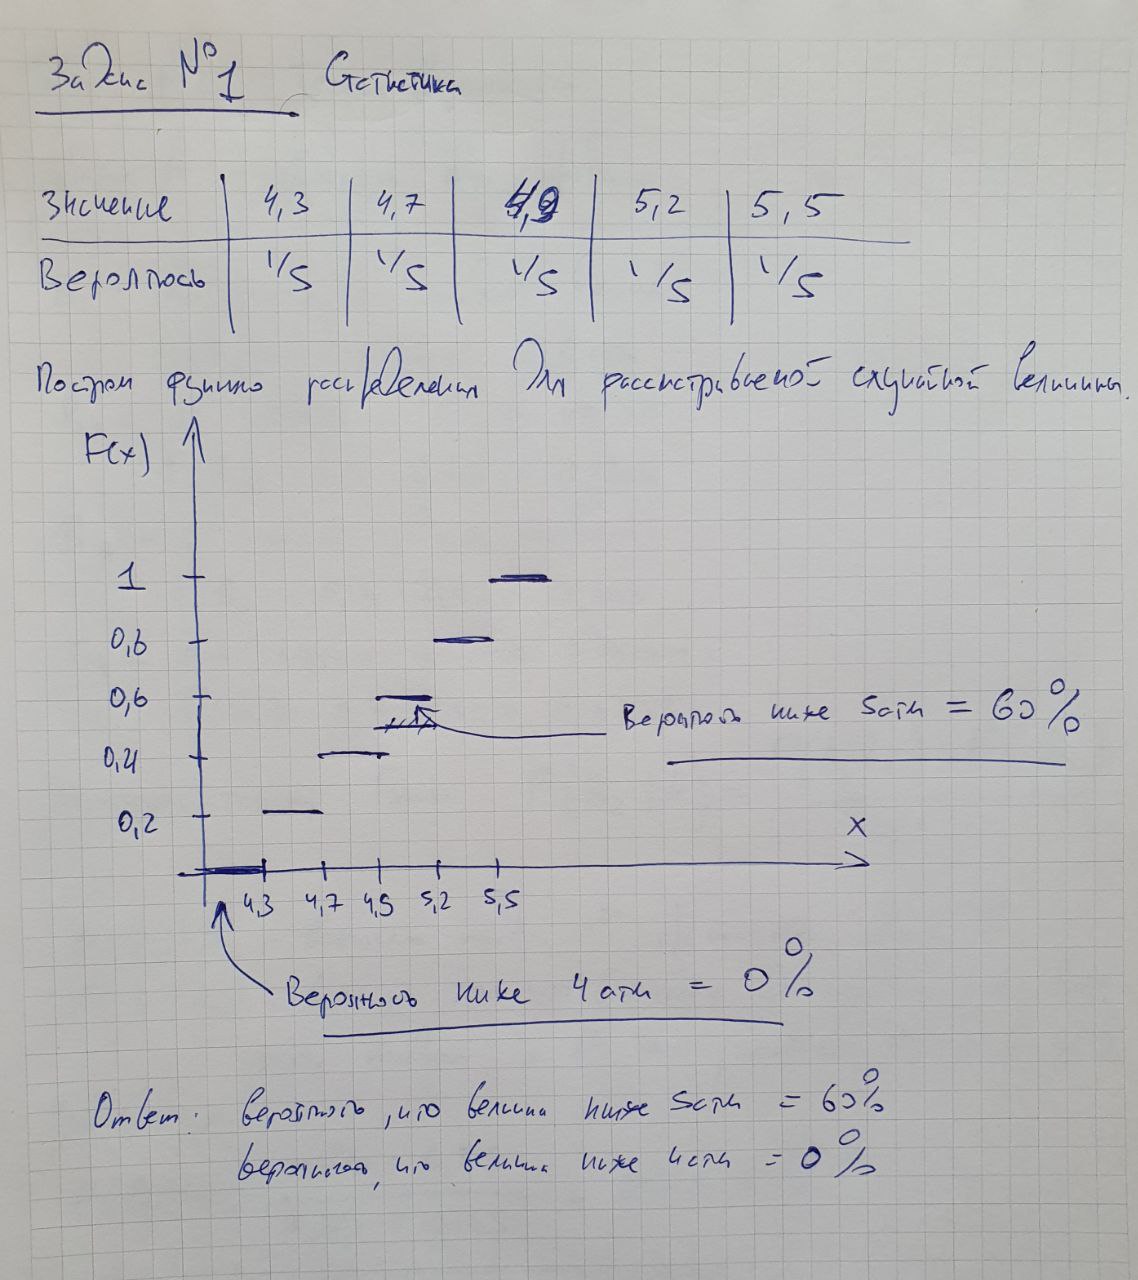 Задача №1 Статистика
Значение 4,3 4,7 4,9 5,2 5,5
Вероятность 1/5 1/5 1/5 1/5 1/5
Построим функцию распределения для рассматриваемой случайной величины.
F(x)
1
0,8
0,6
Вероятность ниже 5 атм = 60%
0,4
0,2
x
4,3 4,7 4,9 5,2 5,5
Вероятность ниже 4 атм = 0%
Ответ: вероятность, что величина ниже 5 атм = 60%
вероятность, что величина ниже 4 атм = 0%